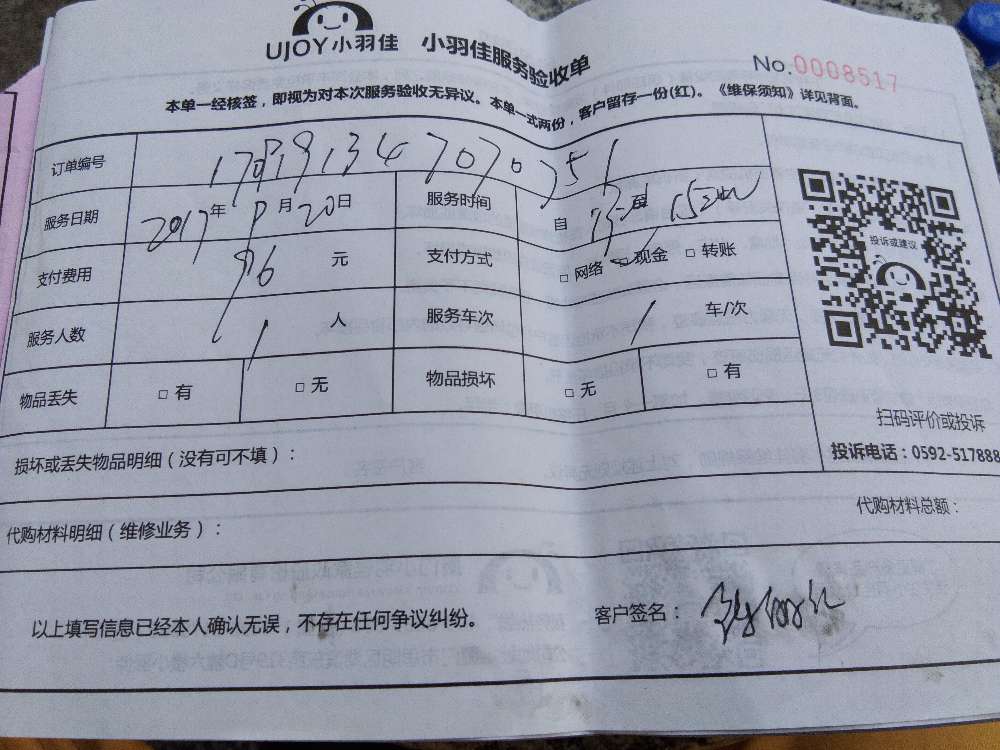 UJOY小羽佳 小羽佳服务验收单
No.0008517
本单一经核签，即视为对本次服务验收无异议。本单一式两份，客户留存一份(红)。《维保须知》详见背面。
订单编号
服务日期 2017年 9月 20日 服务时间 自 至
投诉或建议
支付费用 96 元 支付方式 □ 网络 □ 现金 □ 转账
服务人数 1 人 服务车次 1 车/次
物品丢失 □ 有 □ 无 物品损坏 □ 无 □ 有
扫码评价或投诉
投诉电话：0592-517888
损坏或丢失物品明细（没有可不填）：
代购材料明细（维修业务）： 代购材料总额：
以上填写信息已经本人确认无误，不存在任何争议纠纷。 客户签名：